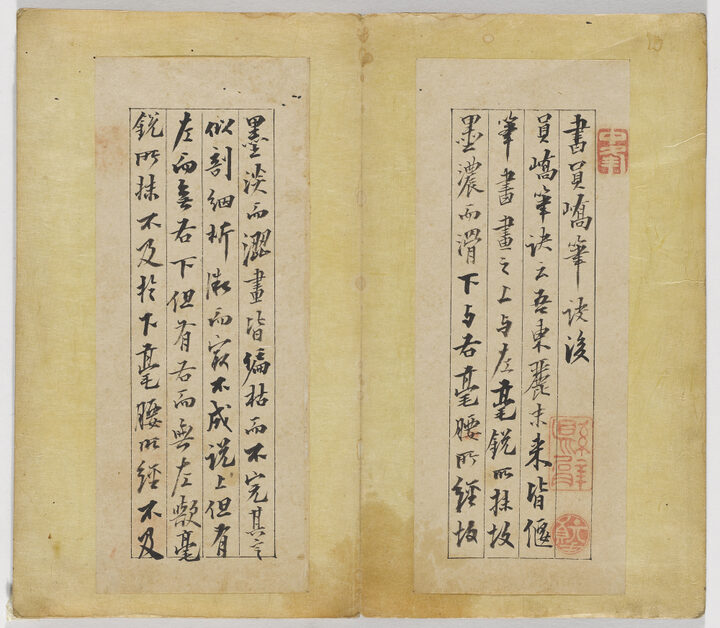 書員嶠筆訣後
員嶠筆訣云吾東麗末来皆偃
筆書畫之上与左毫銳所抹故
墨濃而滑下与右毫腰所經故
墨淡而澀畫皆偏枯而不完其言
似剖細析微而冣不成説上但有
左而無右下但有右而無左歟毫
銳所抹不及於下毫腰所經不及